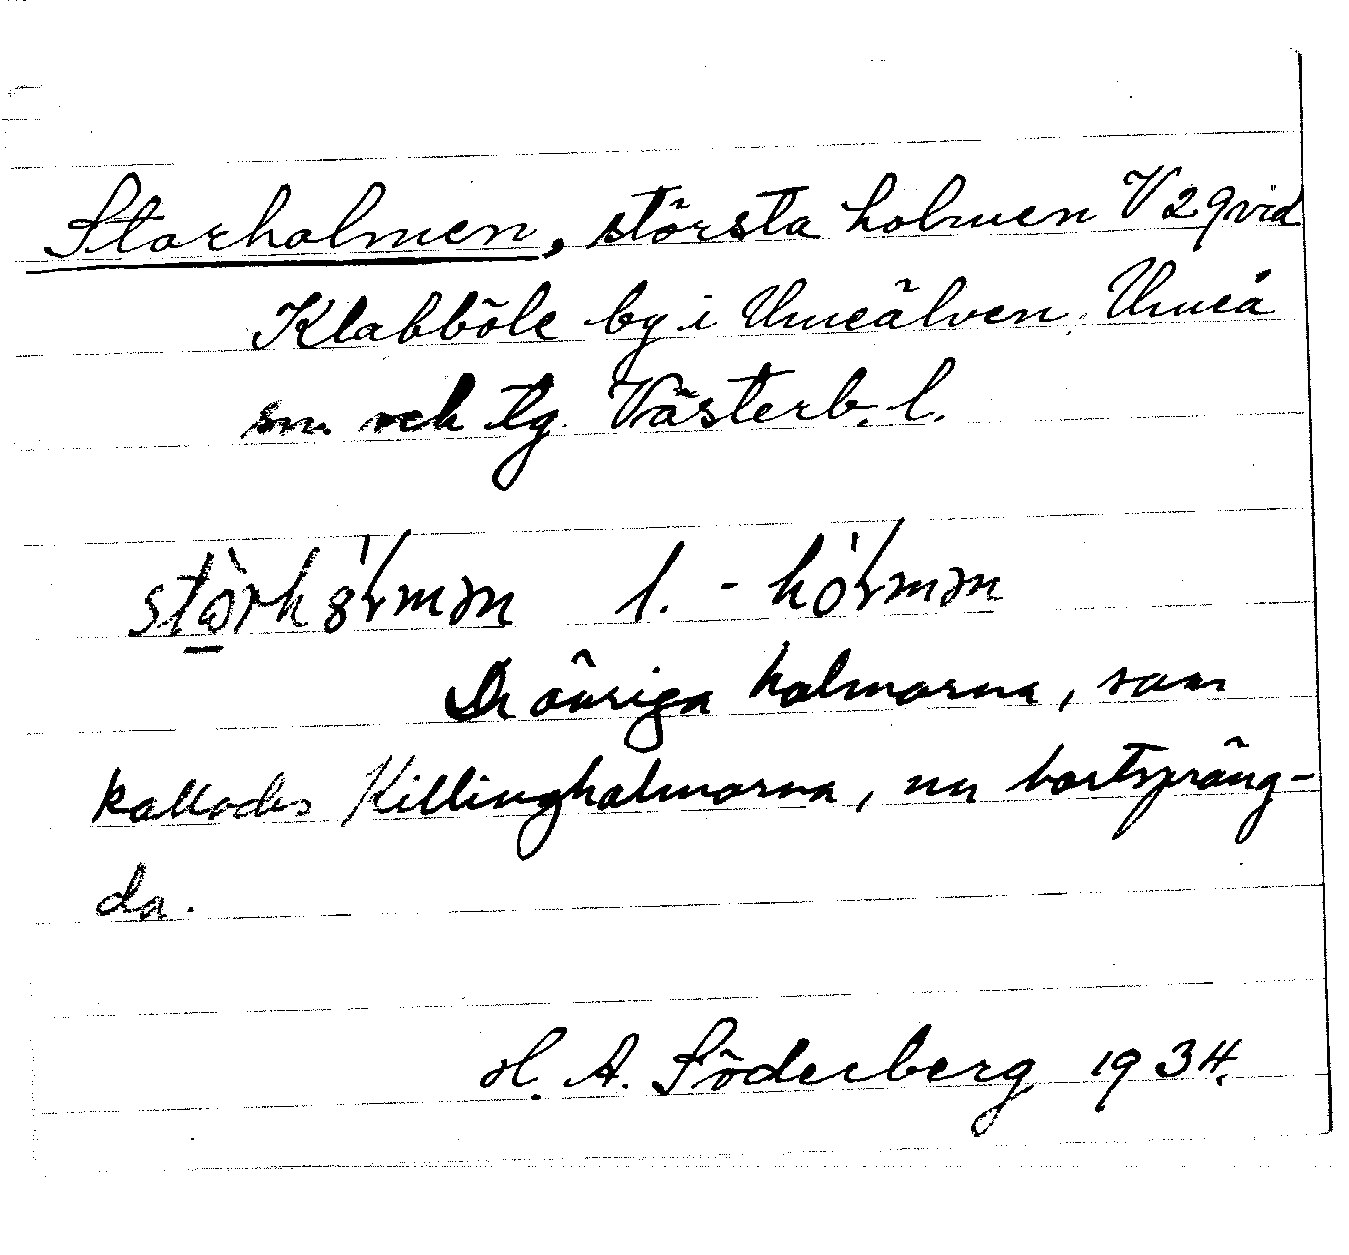 Storholmen, största holmen V 29 vid
Klabböle by i Umeälven, Umeå
sn. och tg. Västerb. l.
l.
De övriga holmarna, som
kallades Killingholmarna, nu bortspräng-
da.
H. A. Söderberg 1934.